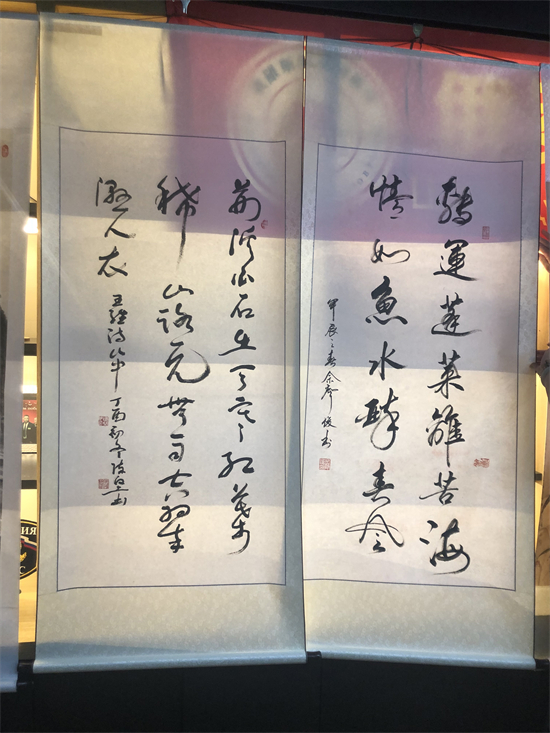 轉運蓬莱離苦海
情如魚水醉春风
甲辰之春余俊书
荆溪白石出天寒红葉
稀山路元無雨空翠
濕人衣
王維诗山中丁酉初冬